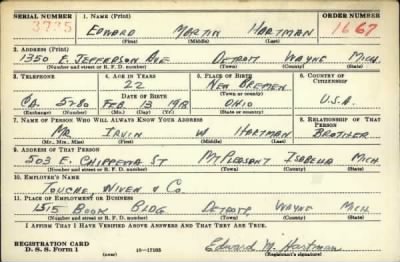 SERIAL NUMBER 1. Name (Print) ORDER NUMBER
3735 EDWARD MARTIN HARTMAN 1667
(First) (Middle) (Last)
2. Address (Print)
1350 E. JEFFERSON AVE DETROIT WAYNE MICH.
(Number and street or R. F. D. number) (Town) (County) (State)
3. Telephone 4. Age in Years 5. Place of Birth 6. Country of Citizenship
22 NEW BREMEN
Date of Birth (Town or county)
CA. 5280 FEB. 13 1918 OHIO U.S.A.
(Mo.) (Day) (Yr.) (State or country)
7. Name of Person Who Will Always Know Your Address 8. Relationship of That Person
MR. IRVIN W HARTMAN BROTHER
(Mr., Mrs., Miss) (First) (Middle) (Last)
9. Address of That Person
503 E. CHIPPEWA ST MT PLEASANT ISABELLA MICH
(Number and street or R. F. D. number) (Town) (County) (State)
10. Employer's Name
TOUCHE, NIVEN & CO.
11. Place of Employment or Business
1515 BOOK BLDG DETROIT, WAYNE MICH
(Number and street or R. F. D. number) (Town) (County) (State)
I Affirm That I Have Verified Above Answers and That They Are True.
REGISTRATION CARD
D. S. S. Form 1 (over) 16—17105 Edward M. Hartman
(Registrant's signature)